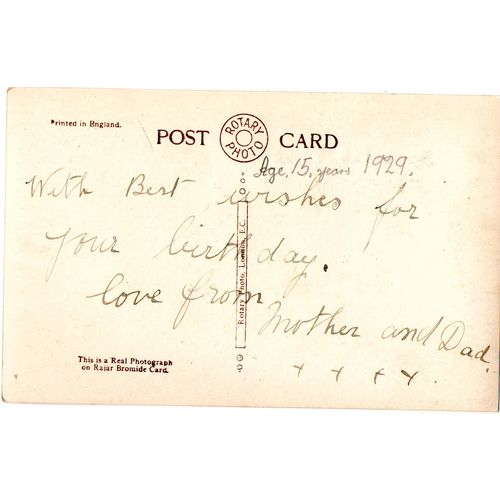 Printed in England.
POST CARD
ROTARY PHOTO
Age, 15, years 1929.
With Best wishes for
your birthday.
love from
Mother and Dad.
x x x x
Rotary Photo, London, E.C.
This is a Real Photograph
on Rajar Bromide Card.